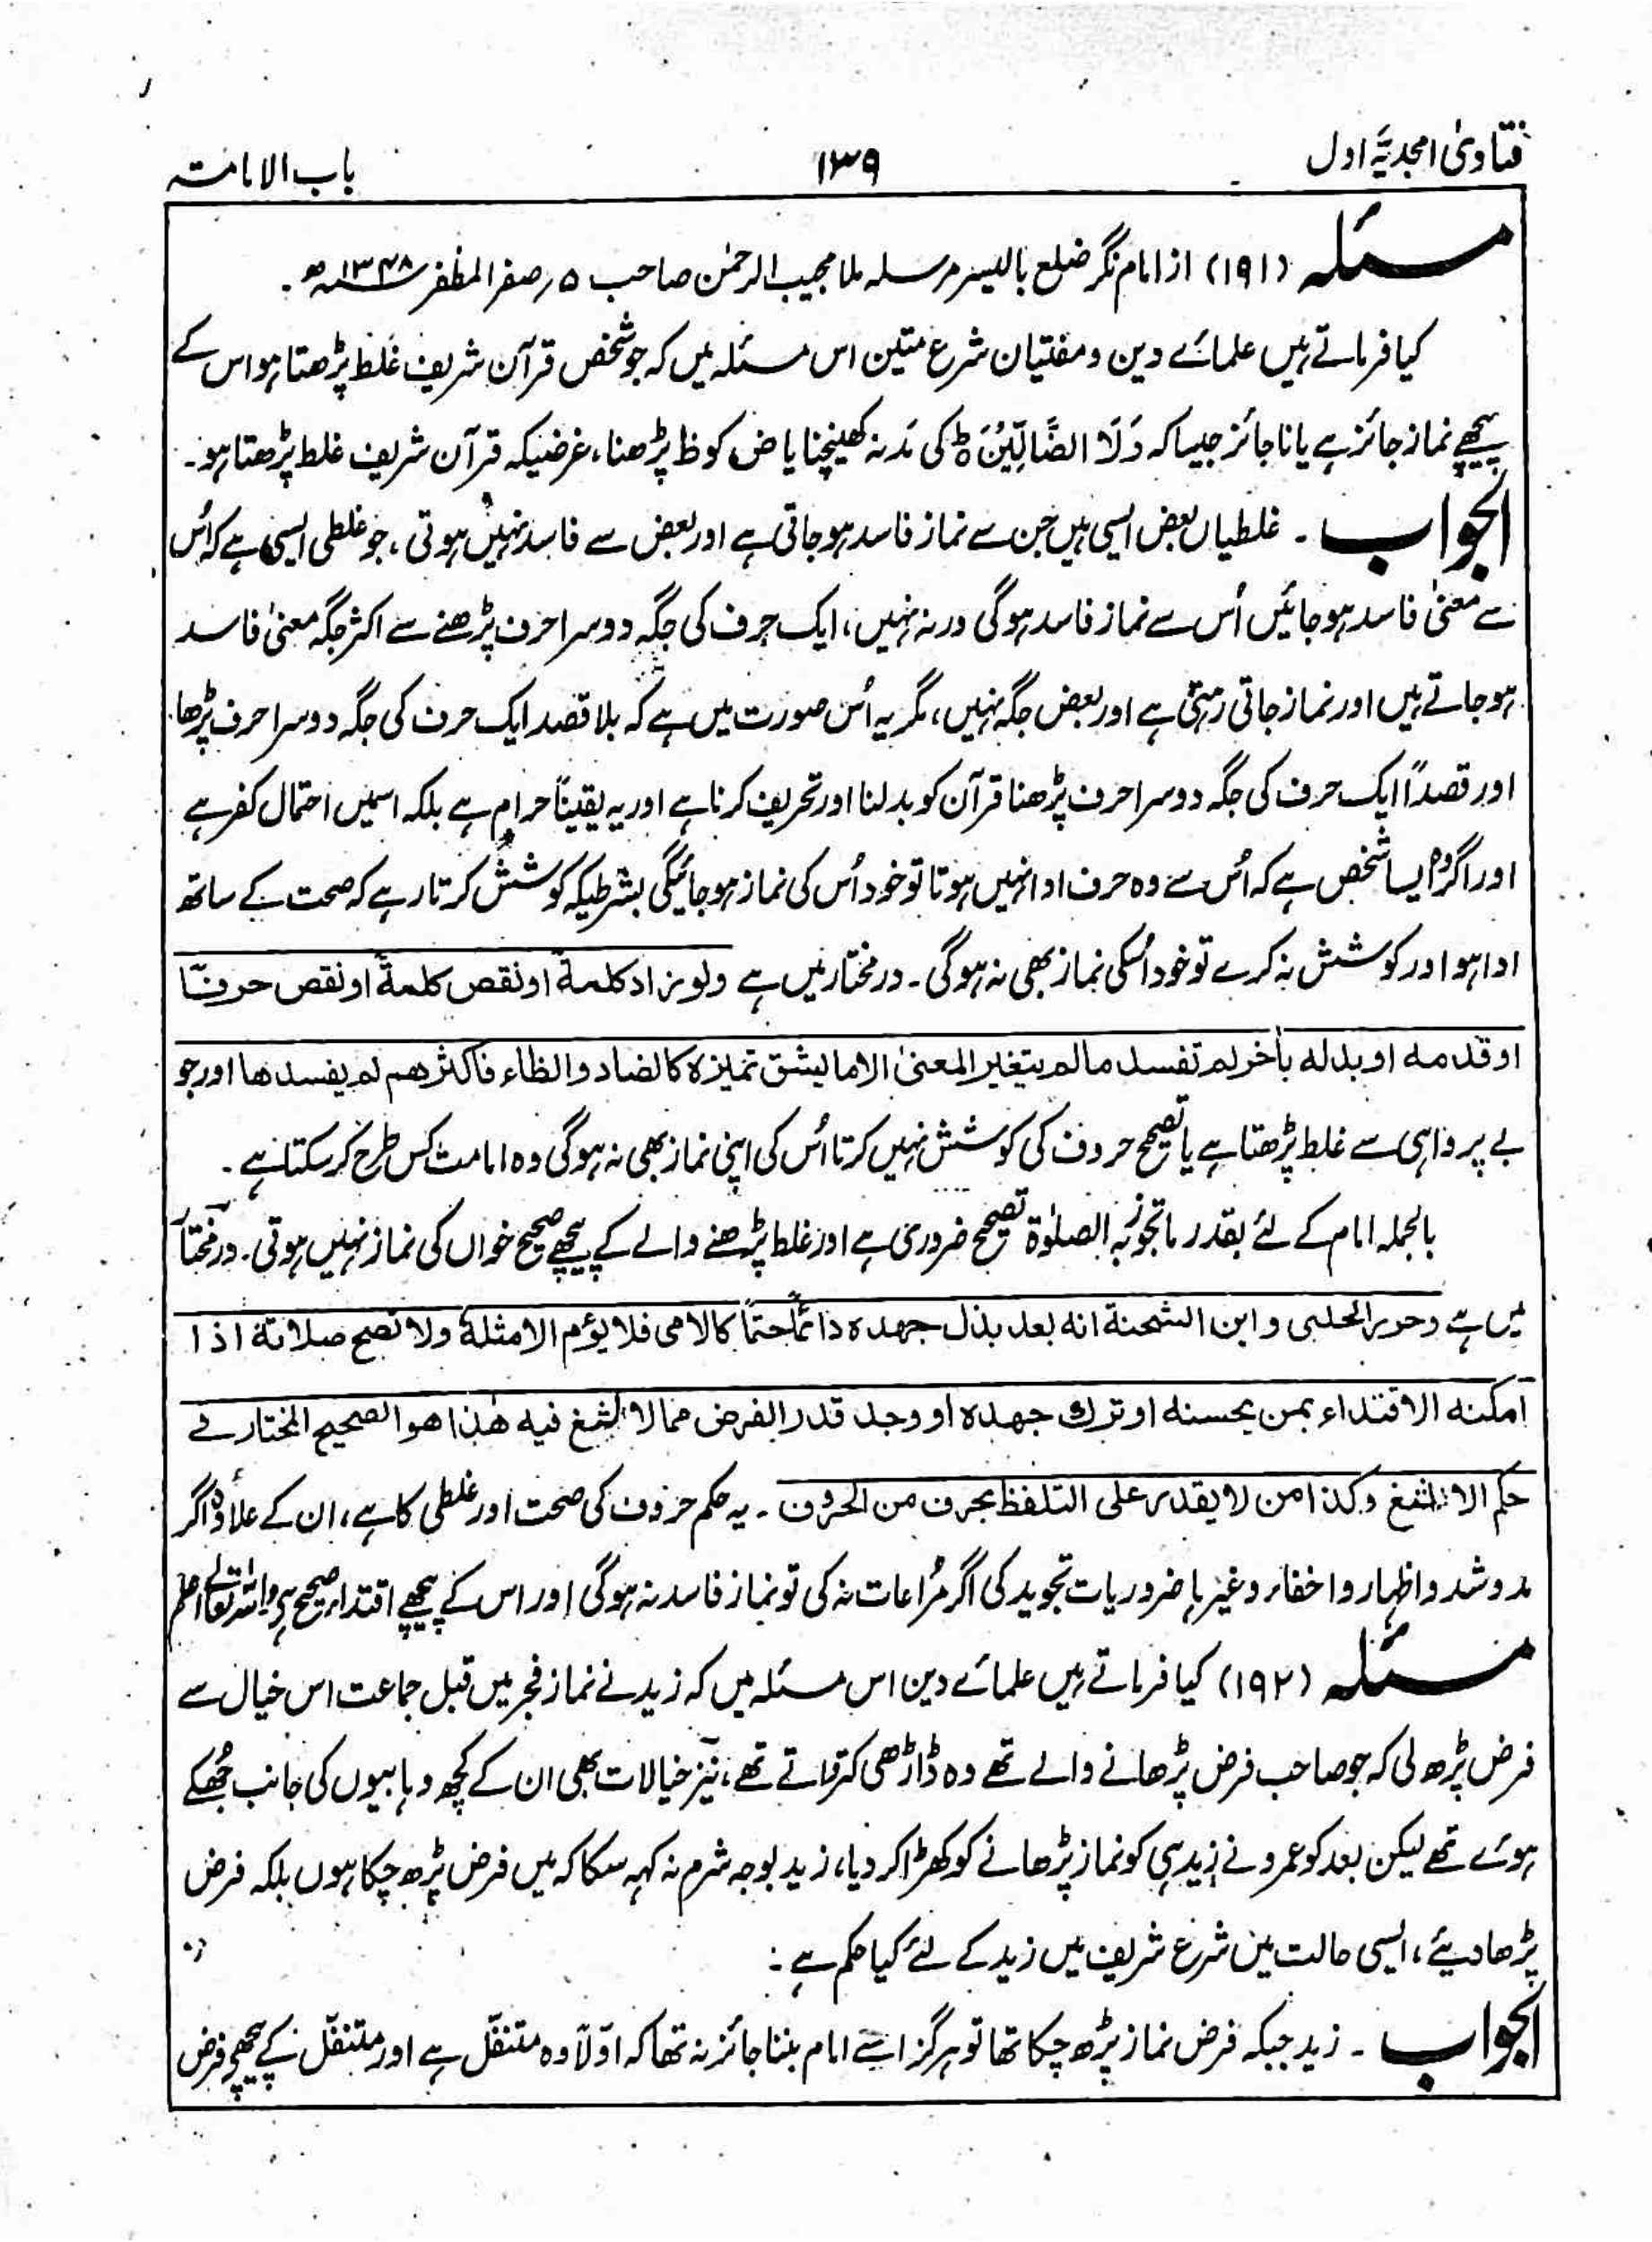 فتاویٰ امجدیہ اول
۱۳۹
باب الامامتہ
مسئلہ (۱۹۱) از امام نگر ضلع بالیسر مرسلہ ملا مجیب الرحمٰن صاحب ۵؍ صفر المظفر ۱۳۴۸ھ۔
کیا فرماتے ہیں علمائے دین و مفتیان شرع متین اس مسئلہ میں کہ جو شخص قرآن شریف غلط پڑھتا ہو اس کے
پیچھے نماز جائز ہے یا ناجائز جیسا کہ وَلَا الضَّالِّیْنَ ہ کی مَد نہ کھینچنا یا ض کو ظ پڑھنا، غرضیکہ قرآن شریف غلط پڑھتا ہو۔
الجواب ۔ غلطیاں بعض ایسی ہیں جن سے نماز فاسد ہوجاتی ہے اور بعض سے فاسد نہیں ہوتی، جو غلطی ایسی ہے کہ اُس
سے معنیٰ فاسد ہوجائیں اُس سے نماز فاسد ہوگی ورنہ نہیں، ایک حرف کی جگہ دوسرا حرف پڑھنے سے اکثر جگہ معنیٰ فاسد
ہوجاتے ہیں اور نماز جاتی رہتی ہے اور بعض جگہ نہیں، مگر یہ اُس صورت میں ہے کہ بلا قصد ایک حرف کی جگہ دوسرا حرف پڑھا
اور قصداً ایک حرف کی جگہ دوسرا حرف پڑھنا قرآن کو بدلنا اور تحریف کرنا ہے اور یہ یقیناً حرام ہے بلکہ اسمیں احتمال کفر ہے
اور اگر وہ ایسا شخص ہے کہ اُس سے وہ حرف ادا نہیں ہوتا تو خود اُس کی نماز ہوجائیگی بشرطیکہ کوشش کرتا رہے کہ صحت کے ساتھ
ادا ہو اور کوشش نہ کرے تو خود اسکی نماز بھی نہ ہوگی۔ درمختار میں ہے ولو زاد کلمۃ او نقص کلمۃ او نقص حرفا
او قدمہ او بدلہ باٰخر لم تفسد مالم یتغیر المعنیٰ الا ما یشق تمیزہ کالضاد والظاء فاکثرھم لم یفسدھا اور جو
بے پرواہی سے غلط پڑھتا ہے یا تصحیح حروف کی کوشش نہیں کرتا اُس کی اپنی نماز بھی نہ ہوگی وہ امامت کس طرح کرسکتا ہے۔
بالجملہ امام کے لئے بقدر ما تجوز بہ الصلوٰۃ تصحیح ضروری ہے اور غلط پڑھنے والے کے پیچھے صحیح خواں کی نماز نہیں ہوتی۔ درمختار
میں ہے وحرر الحلبی وابن الشحنۃ انہ بعد بذل جھدہ دائما حتما کالامی فلا یؤم الا مثلہ ولا تصح صلاتہ اذا
امکنہ الاقتداء بمن یحسنہ او ترک جھدہ او وجد قدر الفرض مما لا لثغ فیہ ھٰذا ھو الصحیح المختار فے
حکم الالثغ وکذا من لا یقدر علی التلفظ بحرف من الحروف ۔ یہ حکم حروف کی صحت اور غلطی کا ہے، ان کے علاوہ اگر
مد و شد و اظہار و اخفاء وغیرہا ضروریات تجوید کی اگر مُراعات نہ کی تو نماز فاسد نہ ہوگی اور اس کے پیچھے اقتداء صحیح ہے واللہ تعالےٰ اعلم
مسئلہ (۱۹۲) کیا فرماتے ہیں علمائے دین اس مسئلہ میں کہ زید نے نماز فجر میں قبل جماعت اس خیال سے
فرض پڑھ لی کہ جو صاحب فرض پڑھانے والے تھے وہ ڈاڑھی کترواتے تھے، نیز خیالات بھی ان کے کچھ وہابیوں کی جانب جُھکے
ہوئے تھے لیکن بعد کو عمرو نے زید ہی کو نماز پڑھانے کو کھڑا کر دیا، زید بوجہ شرم نہ کہہ سکا کہ میں فرض پڑھ چکا ہوں بلکہ فرض
پڑھا دیئے، ایسی حالت میں شرع شریف میں زید کے لئے کیا حکم ہے :
الجواب ۔ زید جبکہ فرض نماز پڑھ چکا تھا تو ہرگز اسے امام بننا جائز نہ تھا کہ اوّلاً وہ متنفّل ہے اور متنفّل کے پیچھے فرض